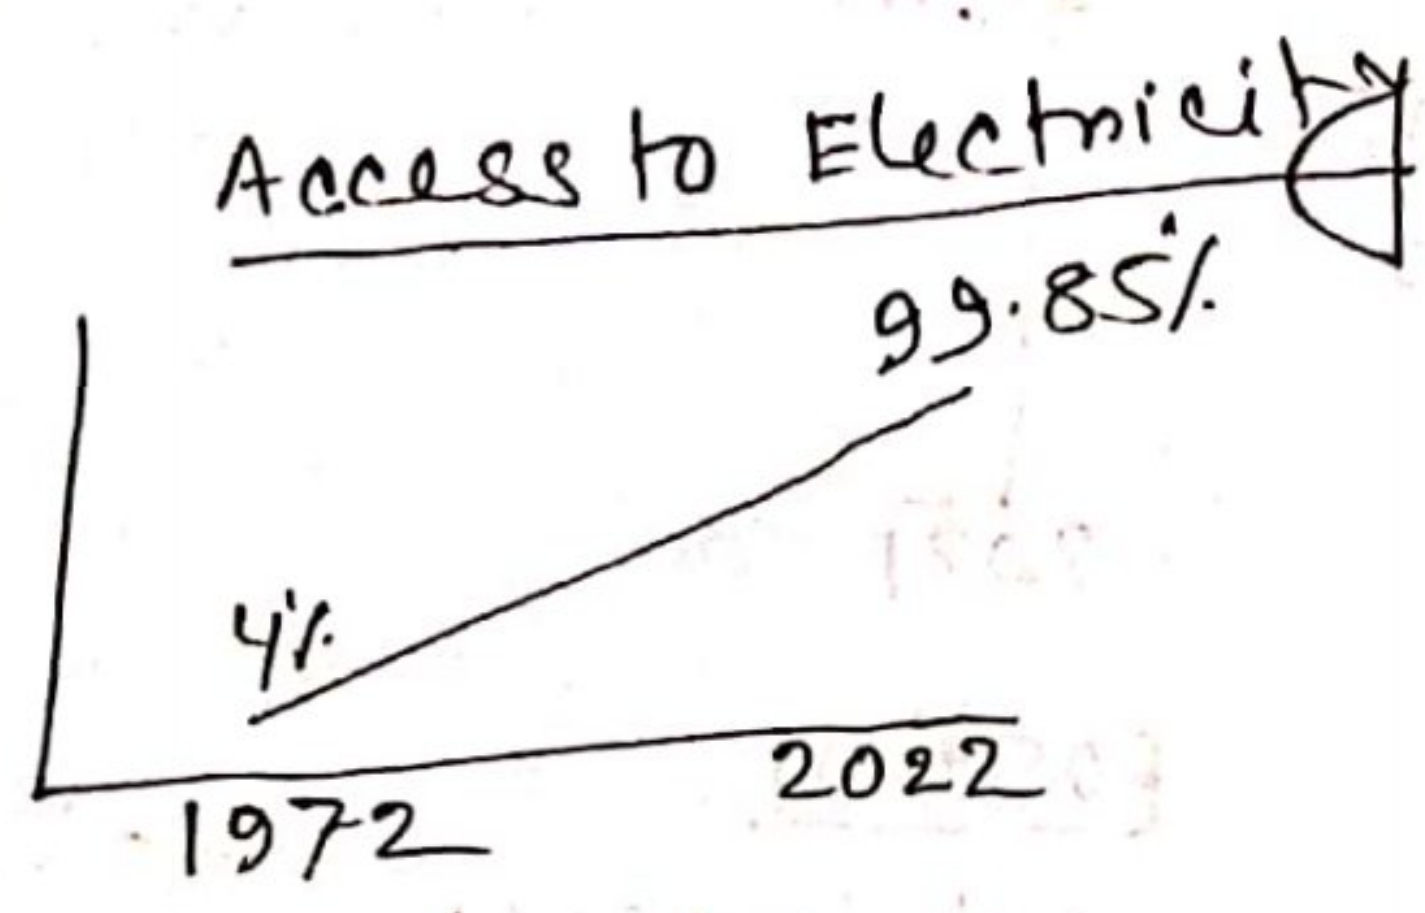 Access to Electricity
99.85%
4%
1972
2022